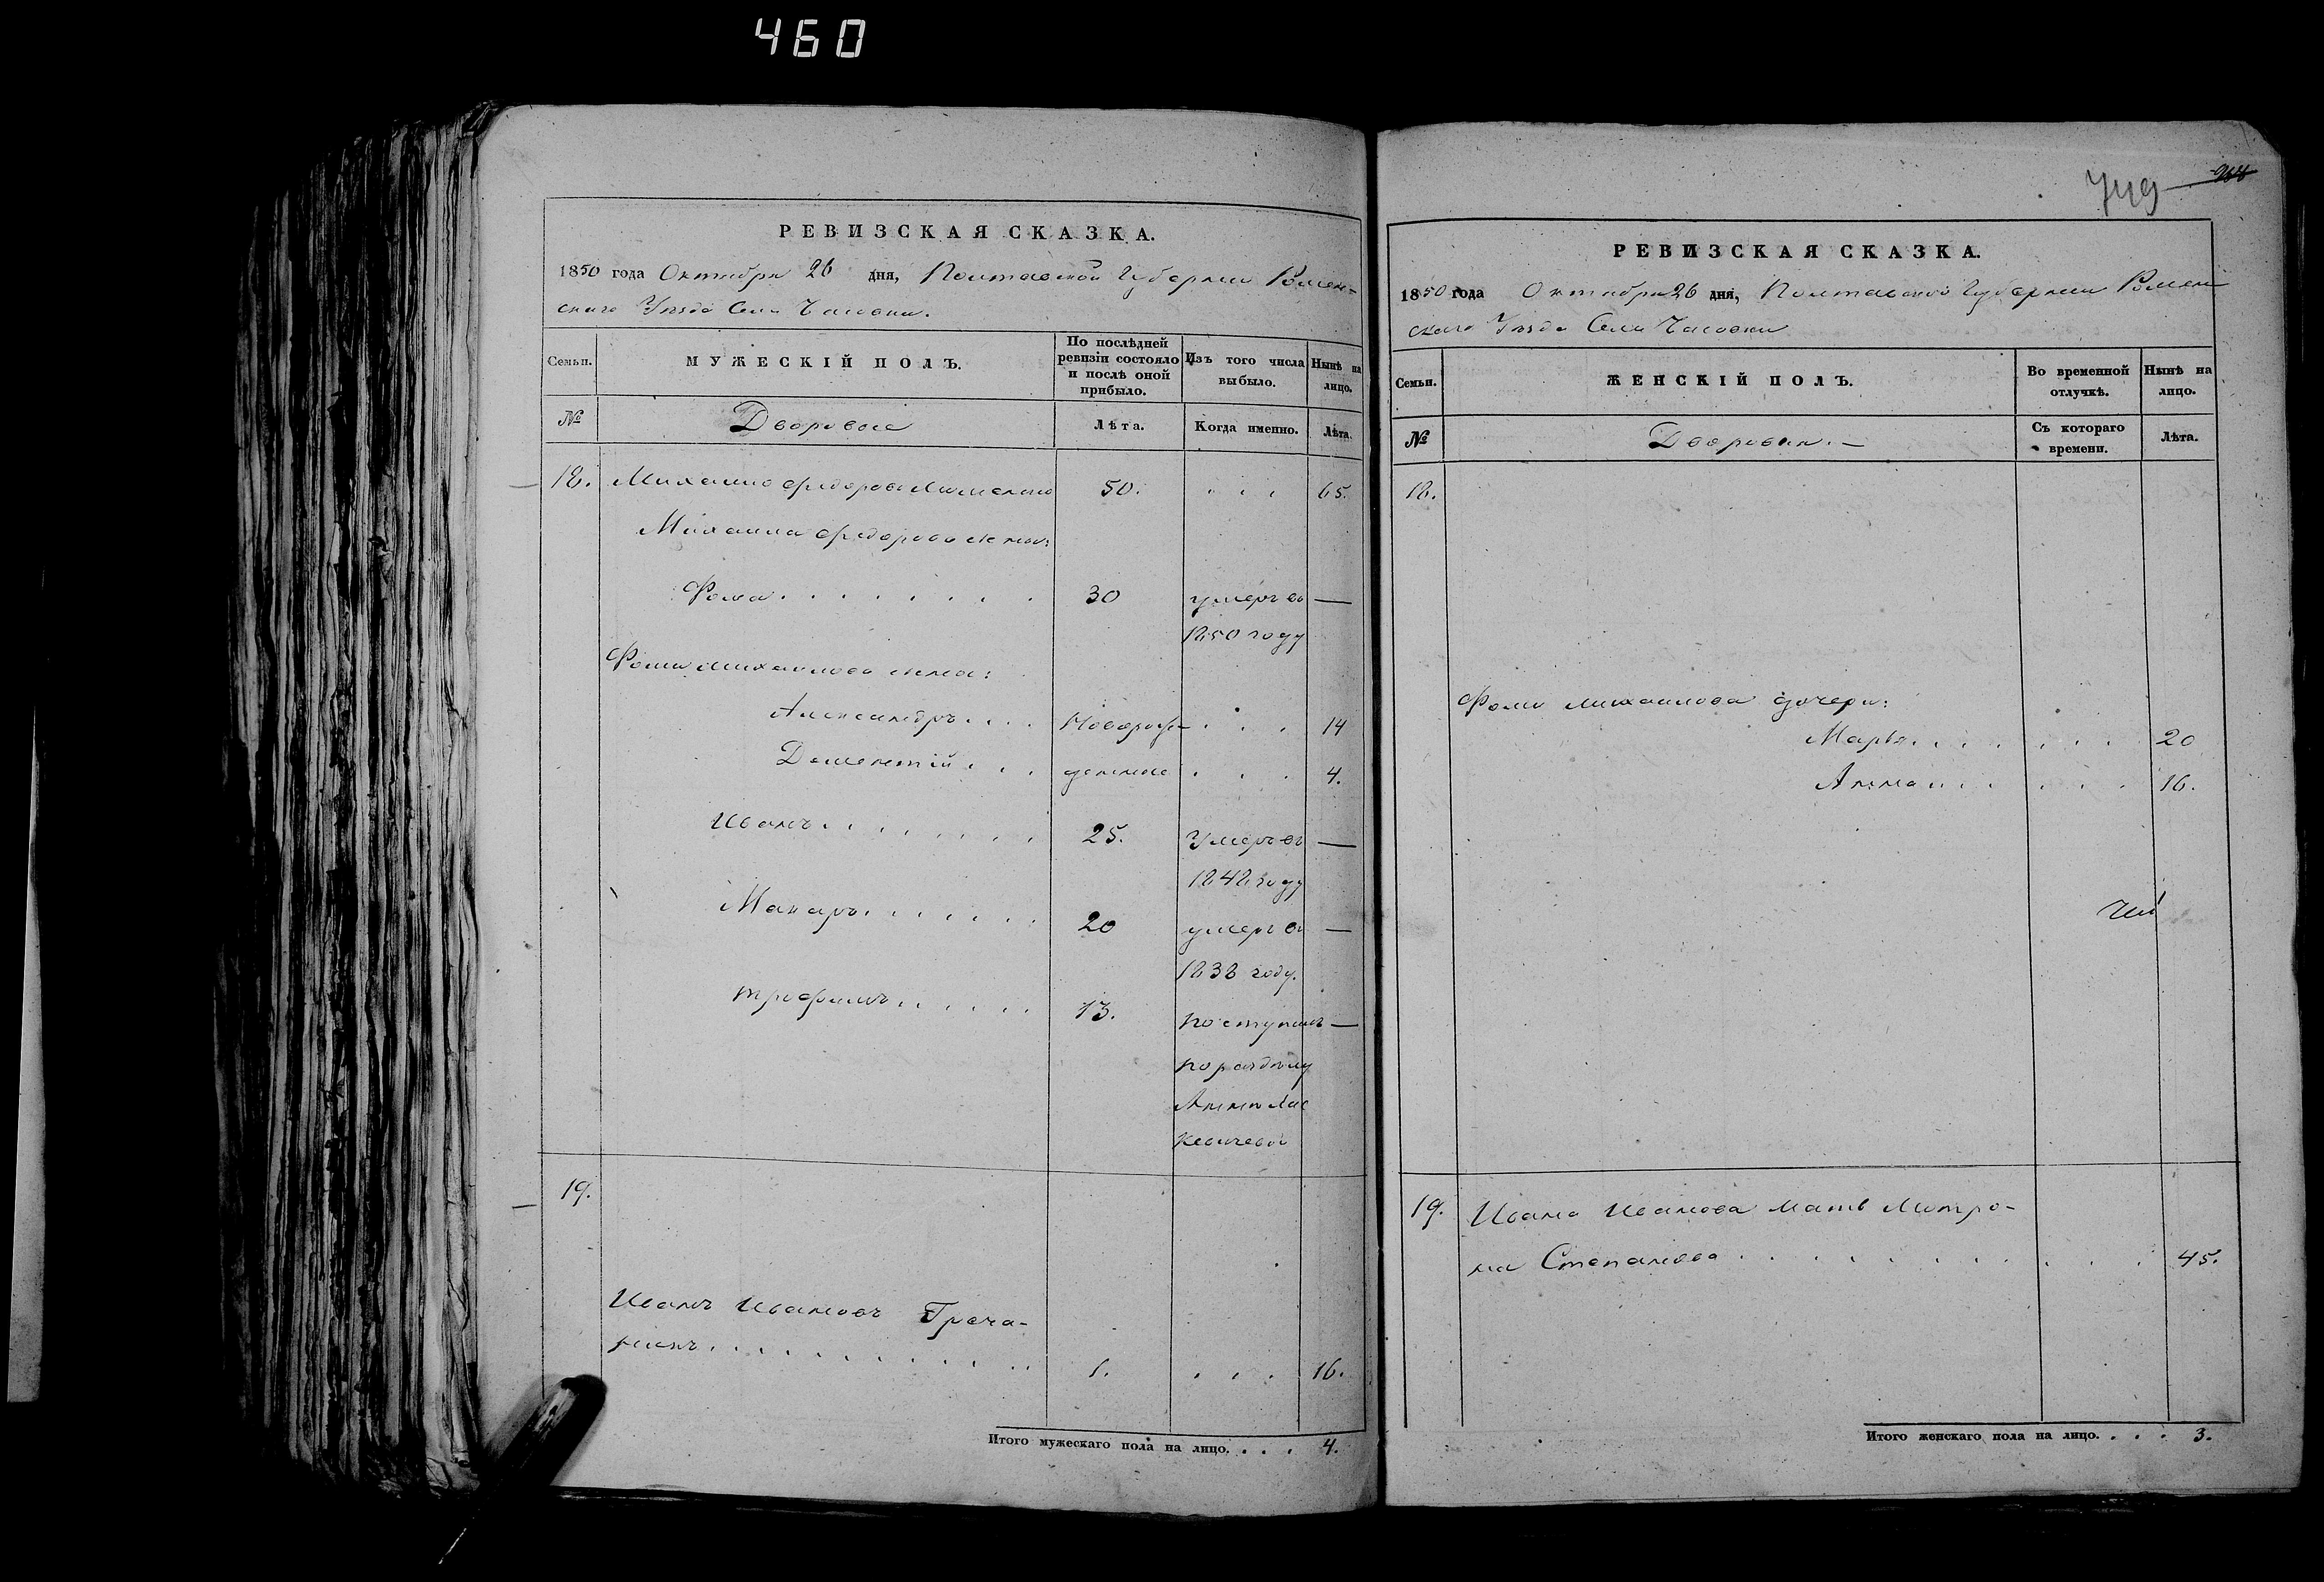 460
РЕВИЗСКАЯ СКАЗКА.
1850 года Октября 26 дня, Полтавской Губернии Ромен-
скаго Уезда Села Чаловки.
Семьи.
МУЖЕСКІЙ ПОЛЪ.
По послѣдней ревизіи состояло и послѣ оной прибыло.
Изъ того числа выбыло.
Нынѣ на лицо.
№
Дворовые
Лѣта.
Когда именно.
Лѣта.
18. Михаило Федоровъ 50. 65.
Михаила Федорова сыны:
Фома 30 умеръ въ —
1850 году
Фомы Михаилова сыны:
Александръ Новорож- 14
Дементій денные 4.
Иванъ 25. Умеръ въ —
1848 году
Макаръ 20 умеръ въ —
1838 году.
Трофимъ 13. поступилъ —
по раздѣлу
Аннѣ
19.
Иванъ Ивановъ Греча-
нинъ 1. 16.
Итого мужескаго пола на лицо. 4.
749 264
РЕВИЗСКАЯ СКАЗКА.
1850 года Октября 26 дня, Полтавской Губернии Ромен
скаго Уезда Села Чаловки
Семьи.
ЖЕНСКІЙ ПОЛЪ.
Во временной отлучкѣ.
Нынѣ на лицо.
№
Дворовыя. —
Съ котораго времени.
Лѣта.
18.
Фомы Михаилова дочери:
Марья 20
Анна 16.
19. Ивана Иванова мать Мотро-
на Степанова 45.
Итого женскаго пола на лицо. 3.